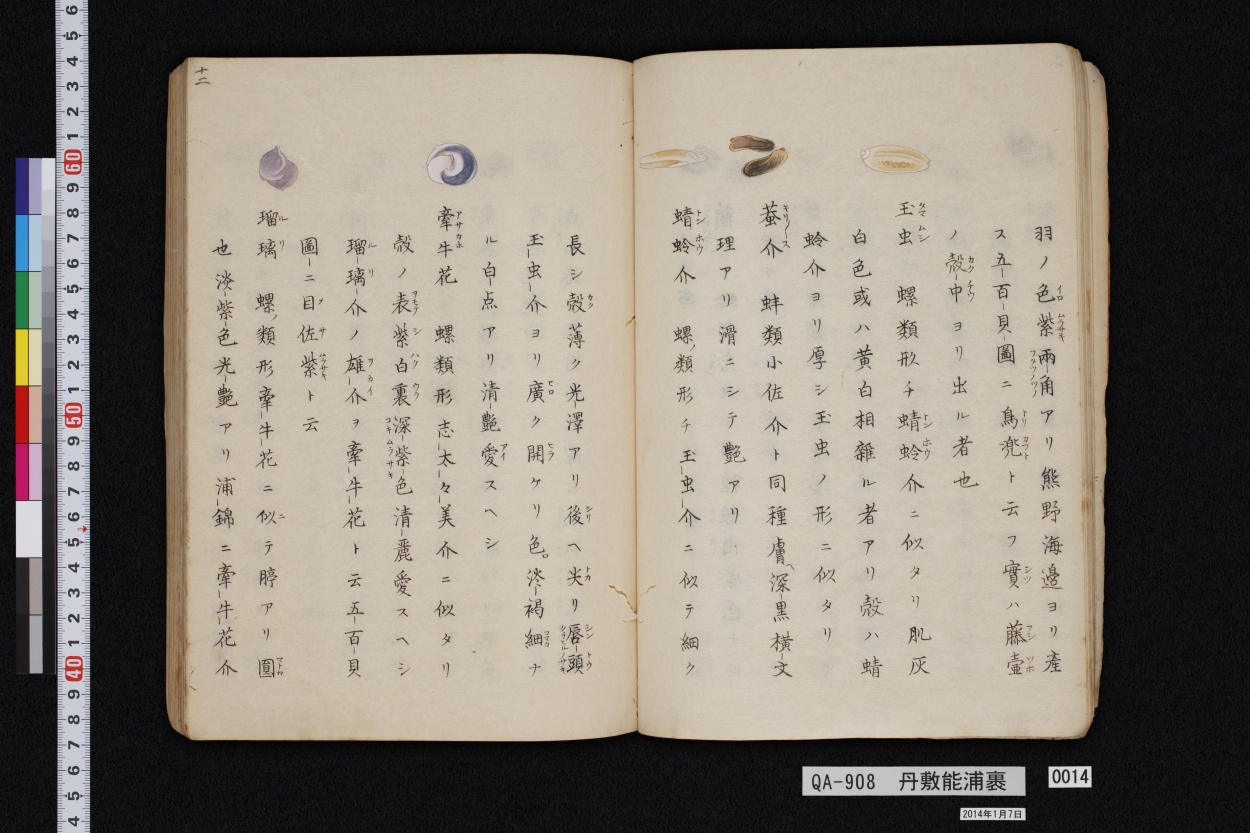 羽ノ色紫兩角アリ熊野海邊ヨリ產
ス五百貝圖ニ鳥兜ト云フ實ハ藤壺
ノ殻中ヨリ出ル者也
玉虫 螺類形チ蜻蛉介ニ似タリ肌灰
白色或ハ黄白相雜ル者アリ殻ハ蜻
蛉介ヨリ厚シ玉虫ノ形ニ似タリ
介 蚌類小佐介ト同種膚深黒横文
理アリ滑ニシテ艷アリ
蜻蛉介 螺類形チ玉虫介ニ似テ細ク
長シ殻薄ク光澤アリ後ヘ尖リ唇頭
玉虫介ヨリ廣ク開ケリ色淡褐細ナ
ル白点アリ清艷愛スヘシ
牽牛花 螺類形志太々美介ニ似タリ
殻ノ表紫白裏深紫色清麗愛スヘシ
瑠璃介ノ雄介ヲ牽牛花ト云五百貝
圖ニ目佐紫ト云
瑠璃 螺類形牽牛花ニ似テ臍アリ圓
也淡紫色光艷アリ浦錦ニ牽牛花介
十二
QA-908 丹敷能浦裹
0014
2014年1月7日